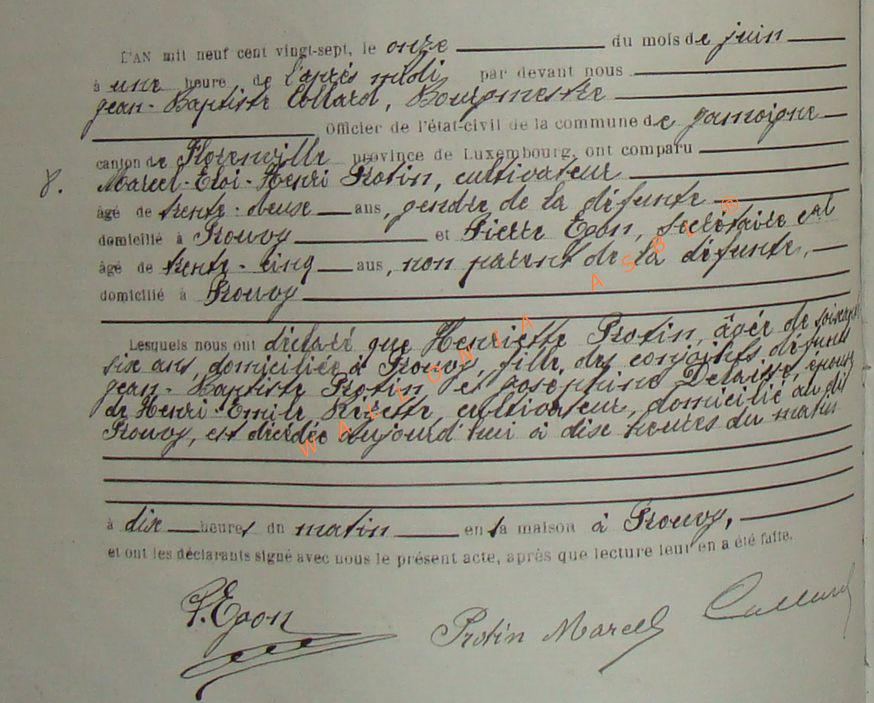 L'AN mil neuf cent vingt-sept, le onze du mois de juin
à une heure de l'après midi par devant nous
Jean-Baptiste Collard, Bourgmestre
Officier de l'état-civil de la commune de Jamoigne
canton de Florenville province de Luxembourg, ont comparu
8. Marcel-Eloi-Henri Protin, cultivateur
âgé de trente-deux ans, gendre de la défunte
domicilié à Prouvy et Pierre Egon, secrétaire cal
âgé de trente-cinq ans, non parent de la défunte,
domicilié à Prouvy
Lesquels nous ont déclaré que Henriette Protin, âgée de soixante
six ans, domiciliée à Prouvy, fille des conjoints défunts
Jean-Baptiste Protin et Joséphine Delaisse, épouse
de Henri-Emile Rizette, cultivateur, domicilié au dit
Prouvy, est décédée aujourd'hui à dix heures du matin
à dix heures du matin en sa maison à Prouvy,
et ont les déclarants signé avec nous le présent acte, après que lecture leur en a été faite.
P. Egon Protin Marcel Collard
WALLONIA ASBL ®